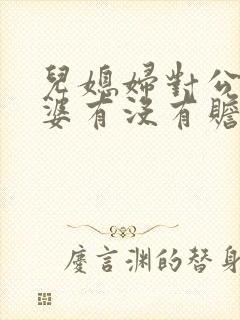 兒媳婦對公
婆有沒有贍
慶言淵的替身